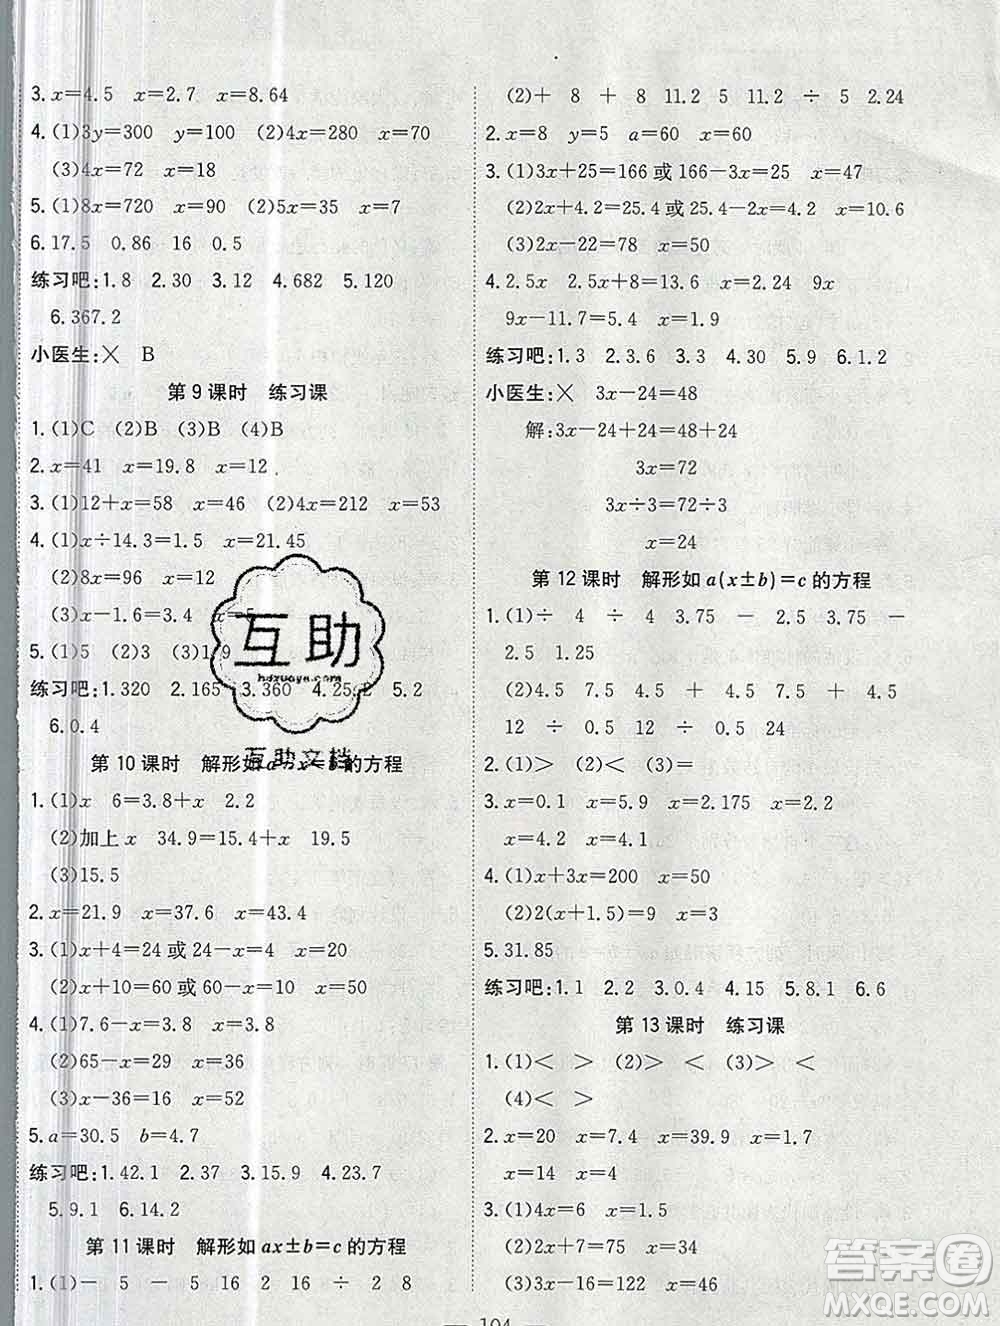 3. x=4.5 x=2.7 x=8.64
4. (1)3y=300 y=100 (2)4x=280 x=70
(3)4x=72 x=18
5. (1)8x=720 x=90 (2)5x=35 x=7
6. 17.5 0.86 16 0.5
练习吧:1.8 2.30 3.12 4.682 5.120
6.367.2
小医生:× B
第 9 课时 练习课
1. (1)C (2)B (3)B (4)B
2. x=41 x=19.8 x=12
3. (1)12+x=58 x=46 (2)4x=212 x=53
4. (1)x÷14.3=1.5 x=21.45
(2)8x=96 x=12
(3)x-1.6=3.4 x=5
5. (1)5 (2)3 (3)1.9
练习吧:1.320 2.165 3.360 4.25.2 5.2
6.0.4
第 10 课时 解形如 a-x=b 的方程
1. (1)x 6=3.8+x 2.2
(2)加上 x 34.9=15.4+x 19.5
(3)15.5
2. x=21.9 x=37.6 x=43.4
3. (1)x+4=24 或 24-x=4 x=20
(2)x+10=60 或 60-x=10 x=50
4. (1)7.6-x=3.8 x=3.8
(2)65-x=29 x=36
(3)x-36=16 x=52
5. a=30.5 b=4.7
练习吧:1.42.1 2.37 3.15.9 4.23.7
5.9.1 6.14.2
第 11 课时 解形如 ax±b=c 的方程
1. (1)- 5 - 5 16 2 16 ÷ 2 8
(2)+ 8 + 8 11.2 5 11.2 ÷ 5 2.24
2. x=8 y=5 a=60 x=60
3. (1)3x+25=166 或 166-3x=25 x=47
(2)2x+4.2=25.4 或 25.4-2x=4.2 x=10.6
(3)2x-22=78 x=50
4. 2.5x 2.5x+8=13.6 x=2.24 9x
9x-11.7=5.4 x=1.9
练习吧:1.3 2.3.6 3.3 4.30 5.9 6.1.2
小医生:× 3x-24=48
解:3x-24+24=48+24
3x=72
3x÷3=72÷3
x=24
第 12 课时 解形如 a(x±b)=c 的方程
1. (1)÷ 4 ÷ 4 3.75 - 2.5 3.75 -
2.5 1.25
(2)4.5 7.5 4.5 7.5 + 4.5 + 4.5
12 ÷ 0.5 12 ÷ 0.5 24
2. (1)> (2)< (3)=
3. x=0.1 x=9.5 x=2.175 x=2
x=4.2 x=4.1
4. (1)x+3x=200 x=50
(2)2(x+1.5)=9 x=3
5. 31.85
练习吧:1.1 2.2 3.0.4 4.15 5.8.1 6.6
第 13 课时 练习课
1. (1)< > (2)> < (3)> <
(4)< >
2. x=20 x=7.4 x=39.9 x=1.7
x=14 x=4
3. (1)4x=6 x=1.5
(2)2x-32=36 x=34
(3)3x-16=122 x=46
104
互助
hdzuoye.com
互助文档
答案圈
MXQE.COM